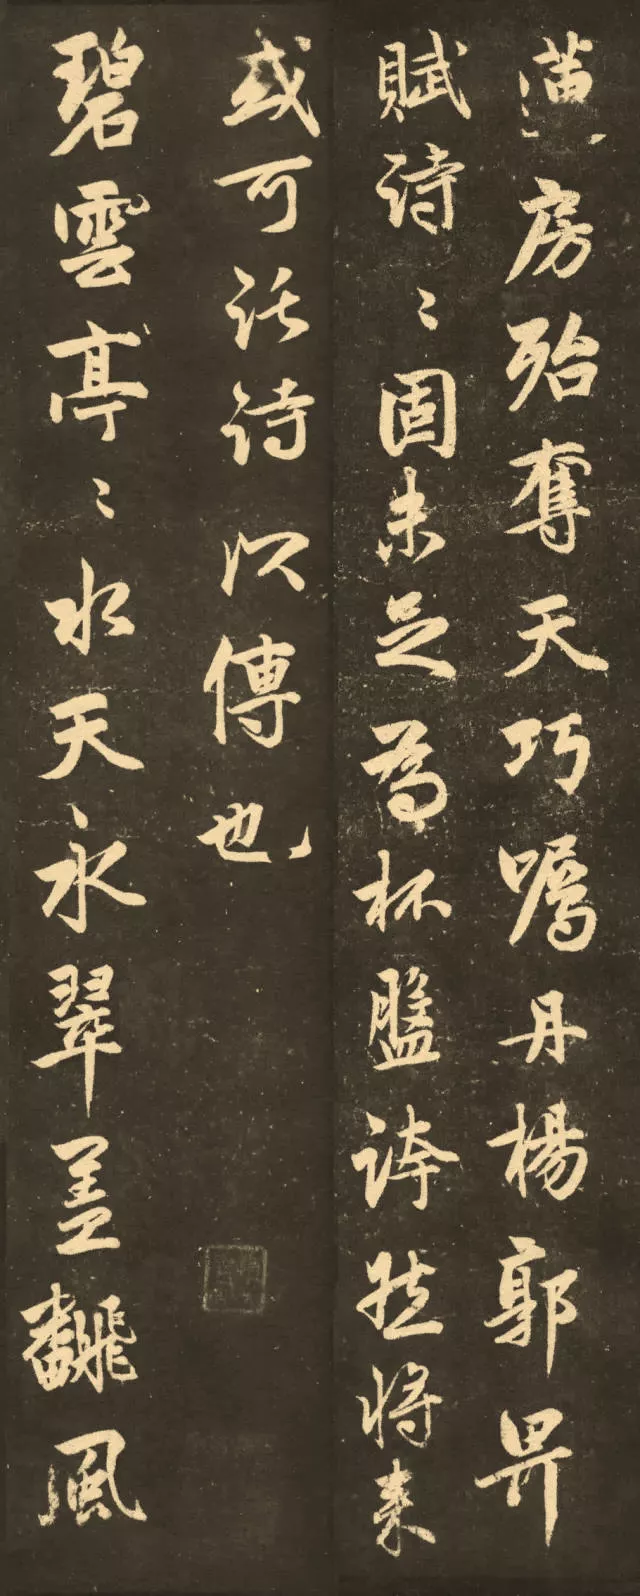 房殆奪天巧嘱丹楊郭畀
賦詩〻固未足為杯盤誇然將来
或可託詩以傳也
碧雲亭〻水天永翠盖飜風